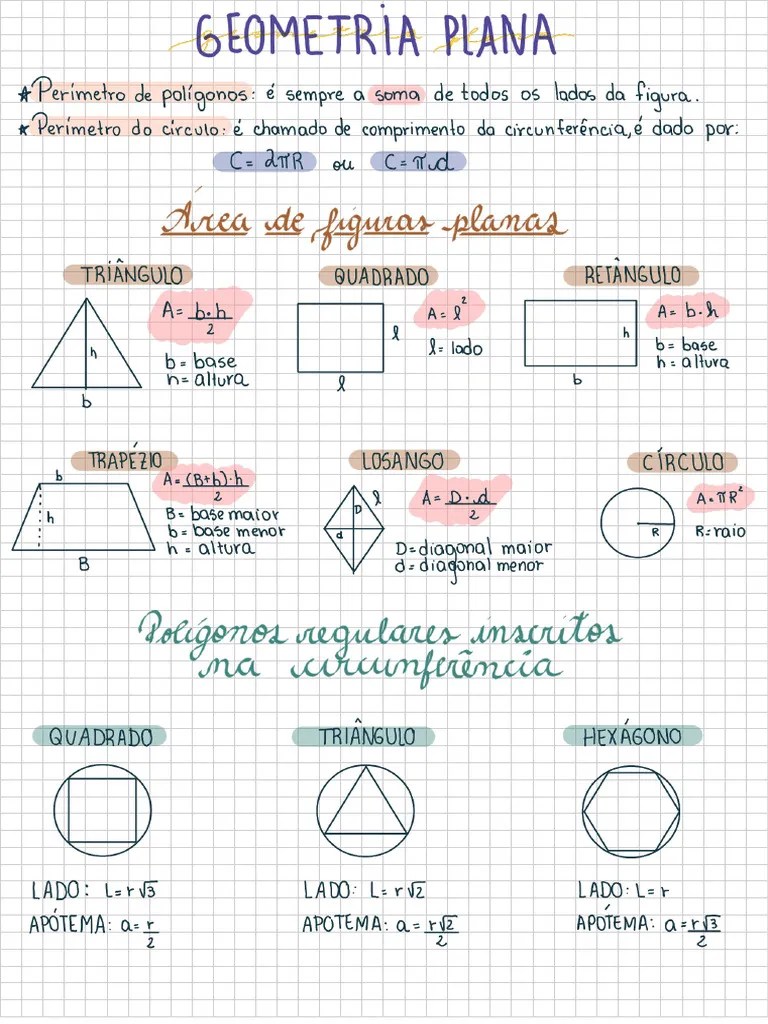 GEOMETRIA PLANA
★ Perímetro de polígonos: é sempre a soma de todos os lados da figura.
★ Perímetro do círculo: é chamado de comprimento da circunferência, é dado por:
C = 2πR ou C = π.d
Área de figuras planas
TRIÂNGULO
A = b.h/2
b = base
h = altura
h
b
QUADRADO
A = l²
l = lado
l
l
RETÂNGULO
A = b.h
b = base
h = altura
h
b
TRAPÉZIO
A = (B+b).h/2
B = base maior
b = base menor
h = altura
b
h
B
LOSANGO
A = D.d/2
l
D
d
D = diagonal maior
d = diagonal menor
CÍRCULO
A = πR²
R = raio
R
Polígonos regulares inscritos
na circunferência
QUADRADO
LADO: L = r√3
APÓTEMA: a = r/2
TRIÂNGULO
LADO: L = r√2
APÓTEMA: a = r√2/2
HEXÁGONO
LADO: L = r
APÓTEMA: a = r√3/2